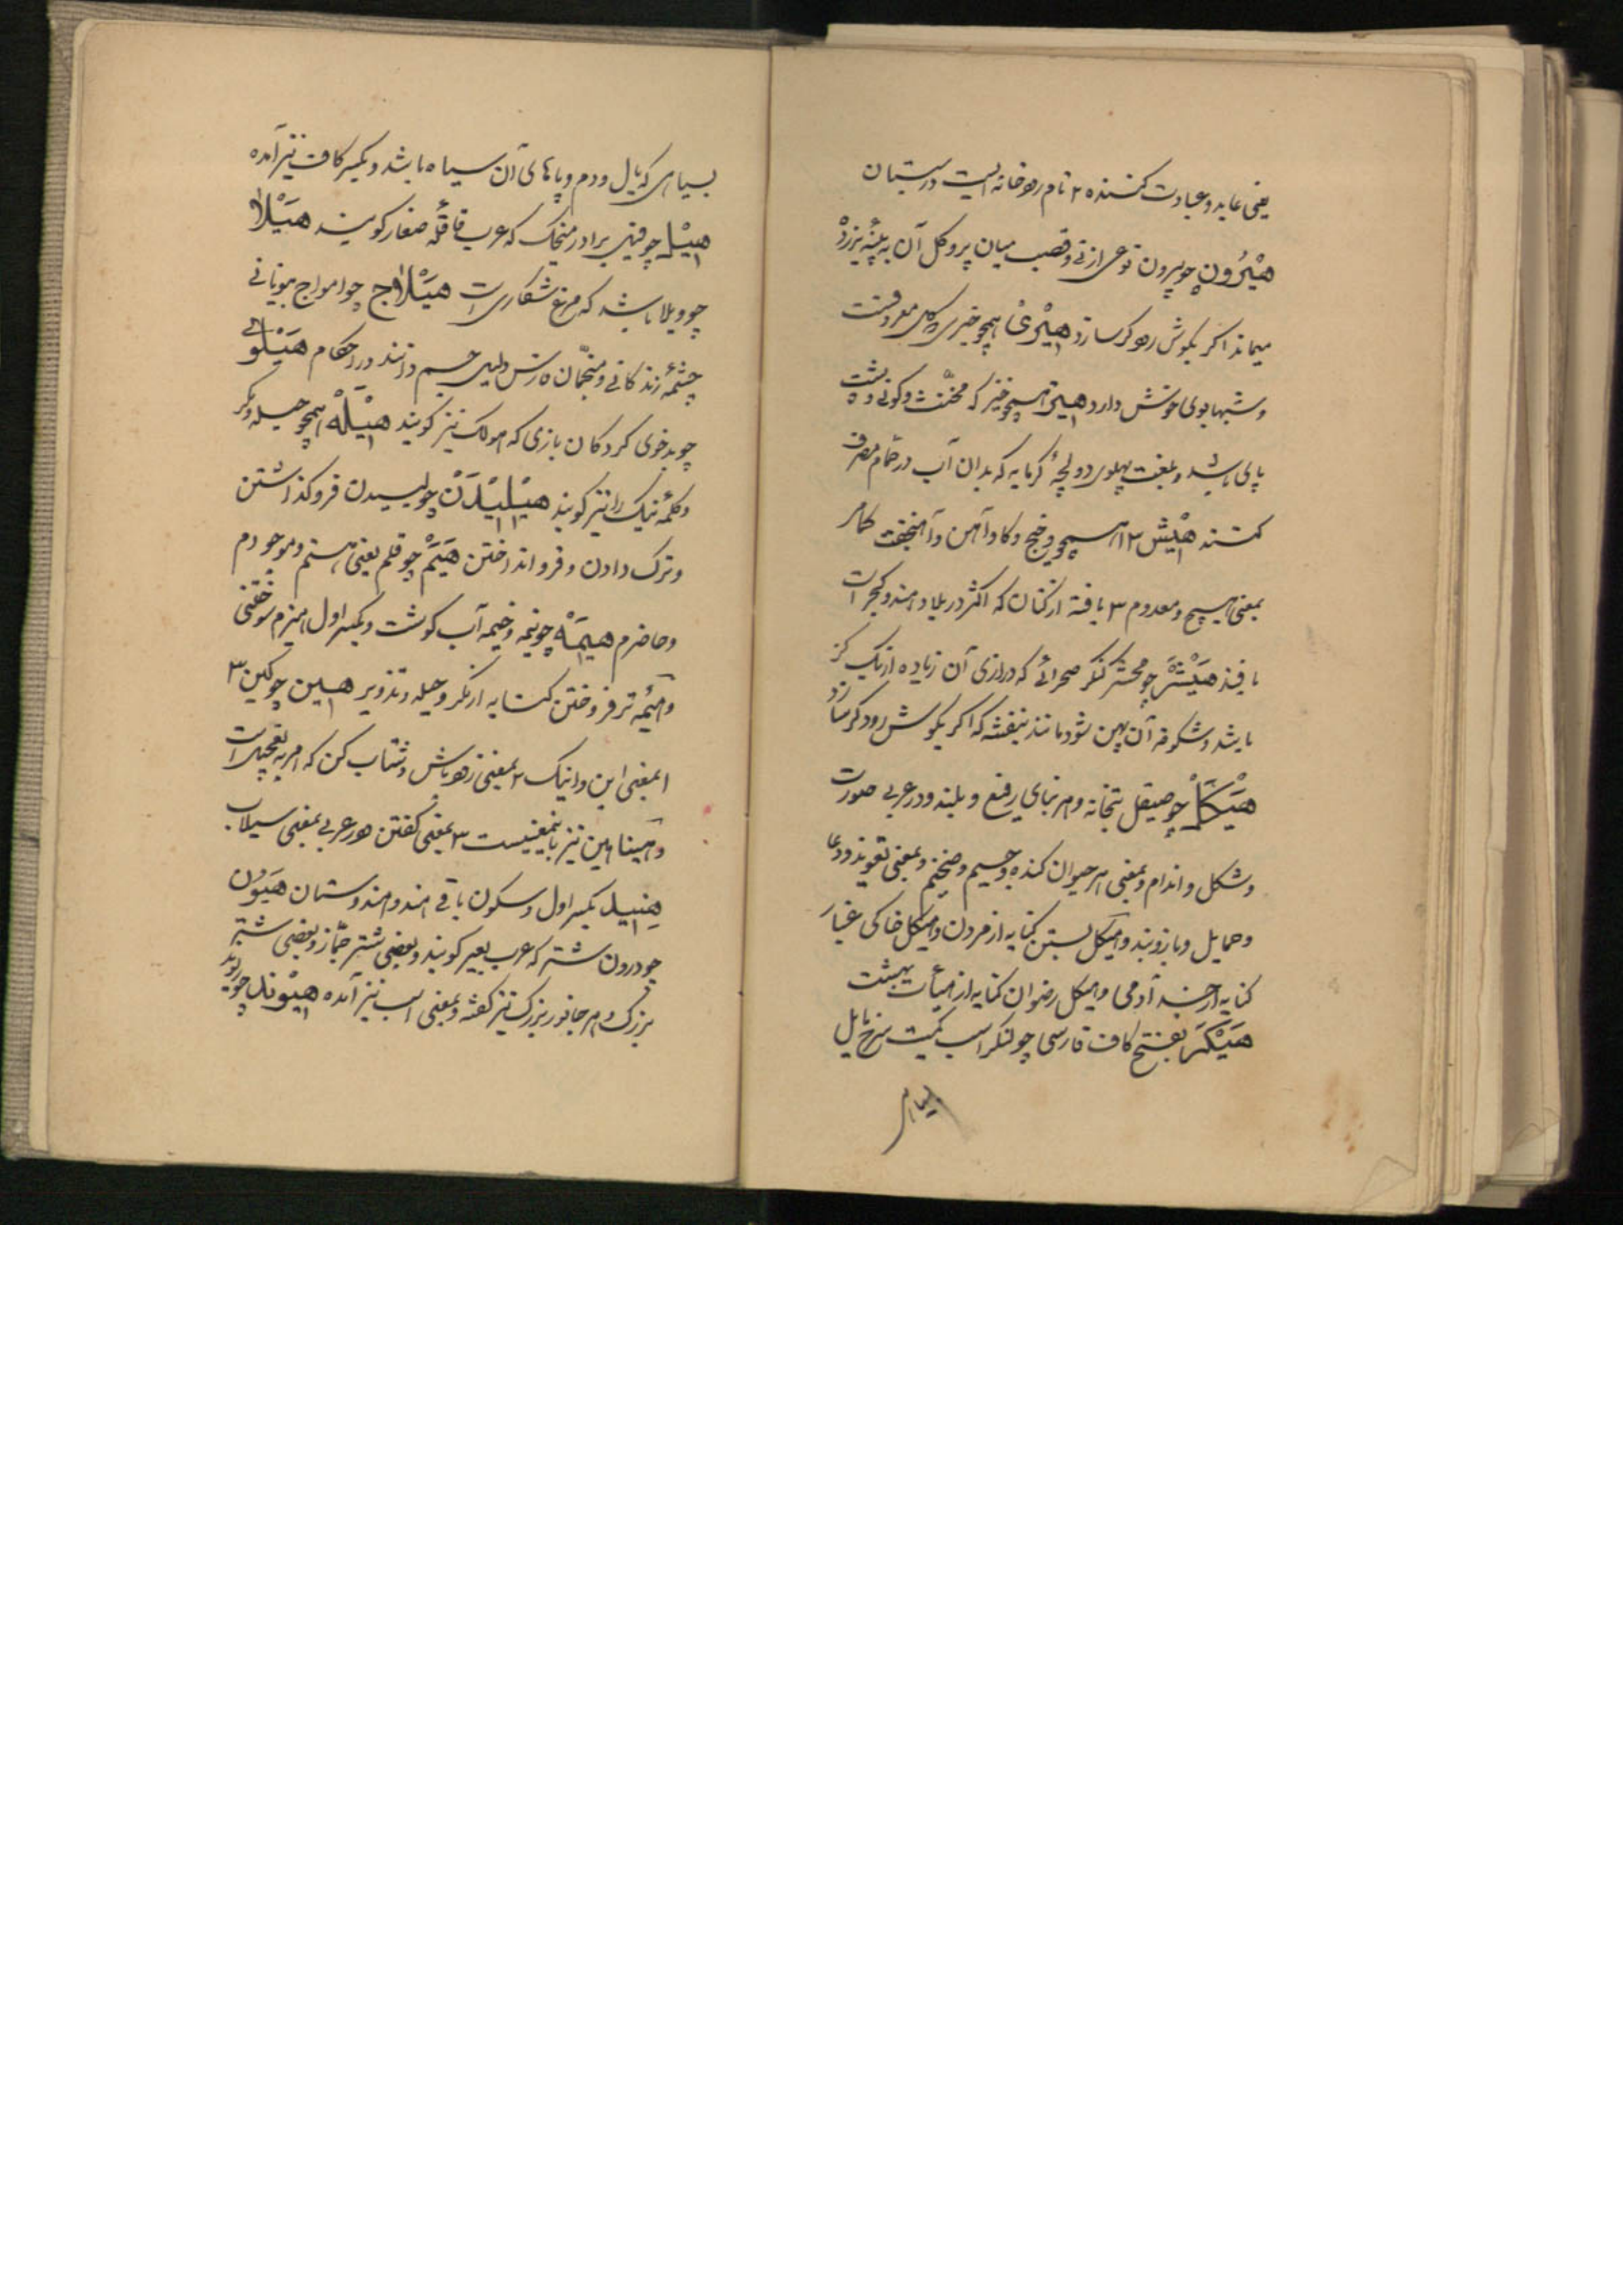 یعنی عابد و عبادت کننده ۲ نام رودخانه ایست در سیستان
هیرون چو بیرون نوعی از نی و قصب میان پر و گل آن به پنبه بزرد
میماند اکر بگوش رود کر سازد هیری همچو خیری گل معروفست
و شبها بوی خوش دارد هیز همچو خیز که مخنث و کونی و پشت
پای باشد و بلغت پهلوی دولچهٔ گرمابه که بدان آب در حمام مصرف
کنند هیش ۱۲ همچو خیش و کاو آهن
بمعنی هیچ و معدوم ۳ بافتهٔ از کتان که اکثر در بلاد هند و گجرات
بافند هیشر چو محشر کنکر صحرائی که درازی آن زیاده از یک گز
باشد و شکوفه آن پهن شود مانند بنفشه که اکر بگوش رود کر سازد
هیکل چو صیقل بتخانه و هر بنای رفیع و بلند و در عربی صورت
و شکل و اندام و بمعنی هر حیوان کنده و جسیم و ضخیم و بمعنی تعویذ و دعا
و حمایل و بازوبند و هیکل بستن کنایه از مردن و هیکل خاکی غبار
کنایه از جسد آدمی و هیکل رضوان کنایه از هیأت بهشت
هیکر بفتح کاف فارسی چو لنکر اسب کمیت سرخ مایل
بسیاهی
بسیاهی که یال و دم و پاهای آن سیاه باشد و بکسر کاف نیز آمده
هیل چو فیل برادر میخک که عرب قاقلهٔ صغار کویند هیلا
چو ویلا باشد که مرغ شکاریست هیلاج چو امواج بیونانی
چشمهٔ زندگانی و منجمان ازش دلیل جسم دانند در احکام هیلوی
چو بدخوی کردکان بازی که هولک نیز کویند هیله همچو حیله و مکر
و کلمهٔ نیک را نیز کویند هیلیدن چو لیسیدن فرو کذاشتن
و ترک دادن و فرو انداختن هیم چو قلم یعنی هستم و موجودم
و حاضرم هیمه چو نیمه و خیمه آب کوشت و بکسر اول هیزم سوختنی
و هیمهٔ تر فروختن کنایه از مکر و حیله و تزویر هین چو کین ۳
۱ بمعنی این و اینک ۲ بمعنی زود باش و شتاب کن که امر به تعجیل است
و هینا هین نیز باینمعنیست ۳ بمعنی کفتن و در عربی بمعنی سیلاب
هنیید بکسر اول و سکون باقی هند و هندوستان هیون
چو درون شتر که عرب بعیر کویند و بعضی شتر جمّاز و بعضی شتر
بزرک و هر جانور بزرک نیز کفته و بمعنی اسب نیز آمده هیوند چو ریوند